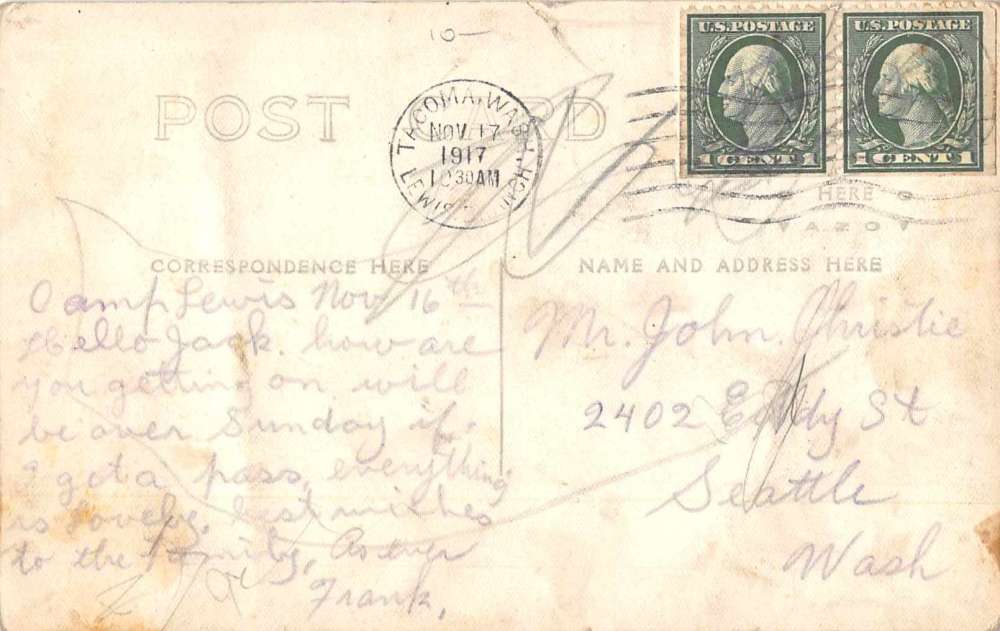 10—
POST CARD
TACOMA, WASH.
NOV. 17
1917
1230AM
LEWIS
U.S. POSTAGE
1 CENT 1
U.S. POSTAGE
1 CENT 1
HERE
AZO
CORRESPONDENCE HERE
NAME AND ADDRESS HERE
Camp Lewis Nov 16th
Hello Jack. how are
you getting on will
be over Sunday if.
I got a pass, everything
is lovely, best wishes
to the Family, As ever
Frank,
Mr. John. Christie
2402 Eddy St
Seattle
Wash